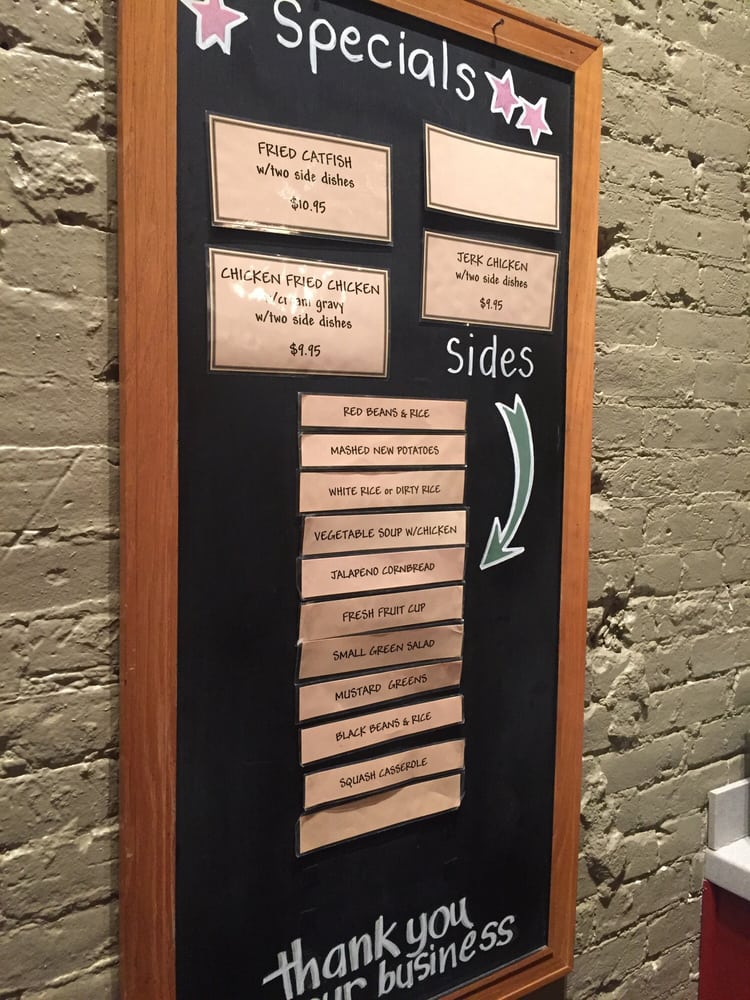 Specials
FRIED CATFISH
w/two side dishes
$10.95
CHICKEN FRIED CHICKEN
gravy
w/two side dishes
$9.95
JERK CHICKEN
w/two side dishes
$9.95
Sides
RED BEANS & RICE
MASHED NEW POTATOES
WHITE RICE or DIRTY RICE
VEGETABLE SOUP W/CHICKEN
JALAPENO CORNBREAD
FRESH FRUIT CUP
SMALL GREEN SALAD
MUSTARD GREENS
BLACK BEANS & RICE
SQUASH CASSEROLE
thank you
business